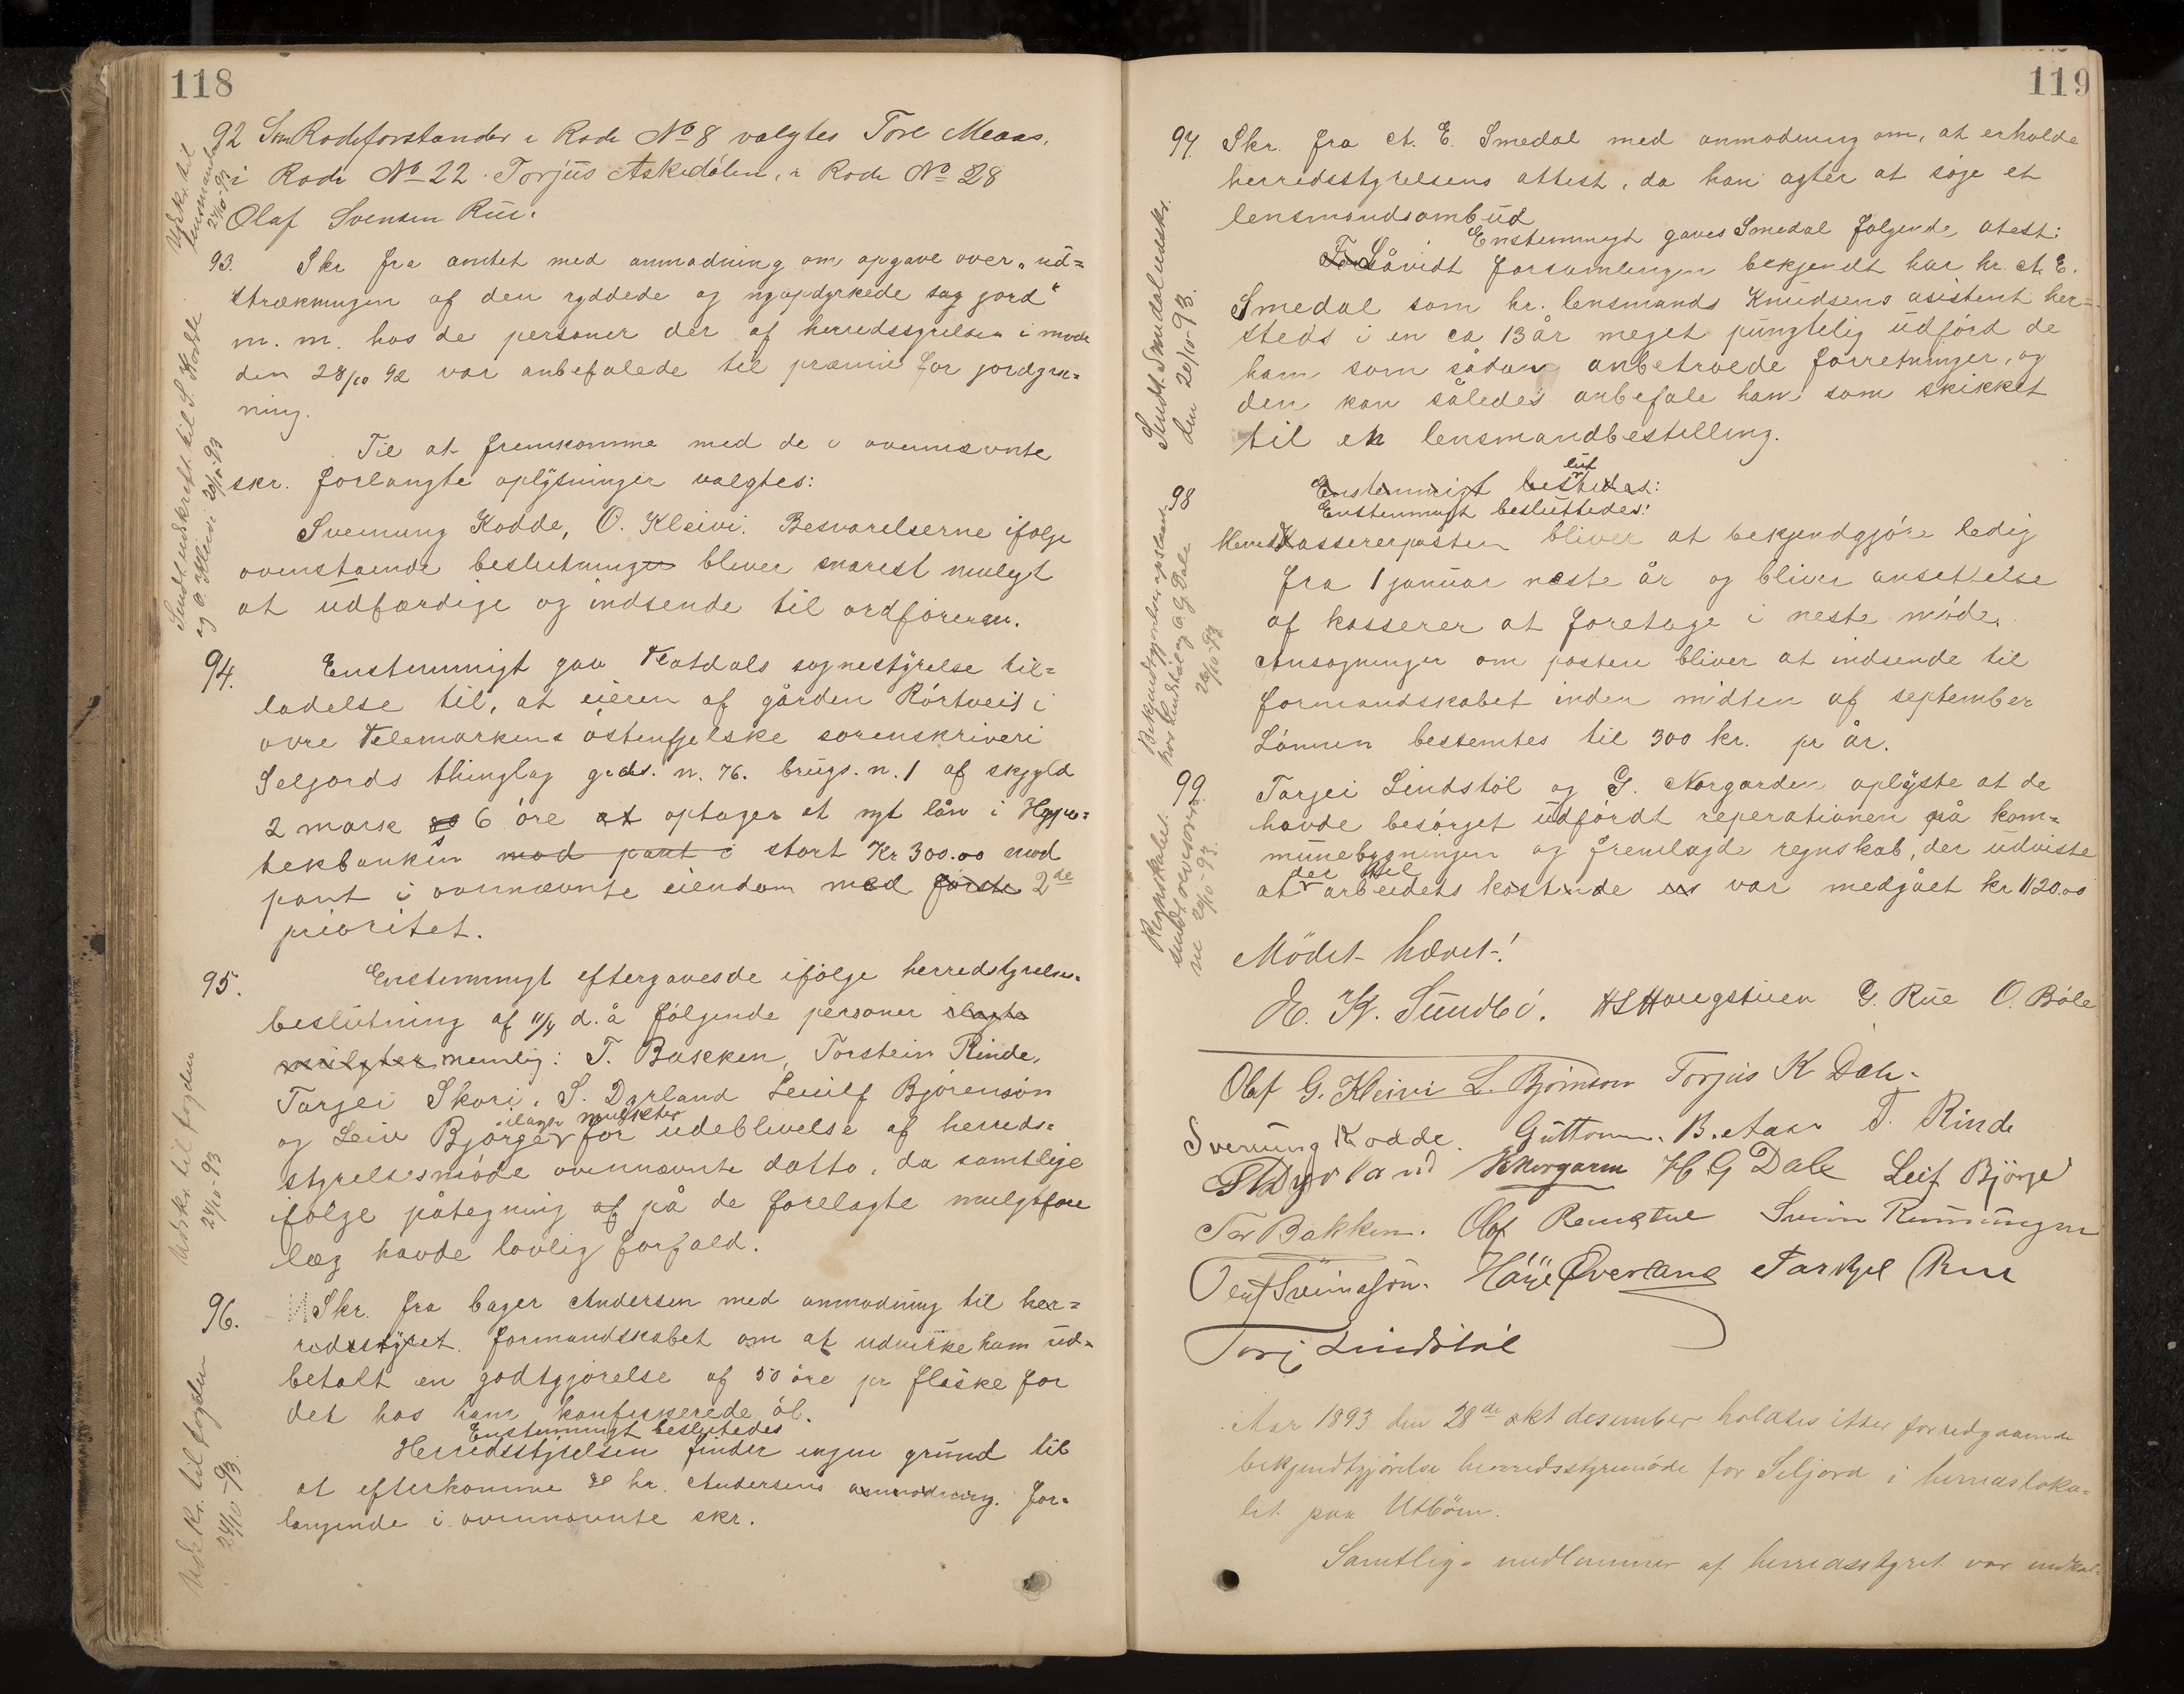 118
92 Som Rodeforstander i Rode No 8 valgtes Tore Meaas,
i Rode No 22. Torjus Askedalen, i Rode No 28
Olaf Svensen Rue.
Udskr. til lensmanden 24/10-93
93. Skr fra amtet med anmodning om opgave over „ud=
strækningen af den ryddede og nyopdyrkede jord“
m. m. hos de personer der af herredsstyrelsen i møde
den 28/10 92 var anbefalede til præmie for jorddyrk=
ning.
Til at fremkomme med de i ovennævnte
skr. forlangte oplysninger valgtes:
Sveinung Kodde, O. Kleivi. Besvarelserne ifølge
ovenstaende beslutninger bliver snarest muligt
at udfærdige og indsende til ordføreren.
Sendt udskrift til S. Kodde
og O. Kleivi 20/10-93
94. Enstemmigt gav Flatdals sognestyrelse til=
ladelse til, at eieren af gården Rørtveit i
øvre Telemarkens østenfjelske sorenskriveri
Seljords thinglag grds. n. 76. brugs. n. 1 af skyld
2 mark 6 øre optager et nyt lån i Hypo=
tekbanken mod pant i stort Kr 300.00 mod
pant i ovennævnte eiendom med første 2de
prioritet.
95. Enstemmigt eftergavesde ifølge herredstyrelses=
beslutning af 11/4 d. å følgende personer ilagte
mulgter nemlig: T. Bakken, Torstein Rinde,
Tarjei Skori, S. Dyrland Leiulf Bjørenson
og Leiv Bjørge ilagte mulkter for udeblivelse af herreds=
styrelsesmøde ovennævnte datto, da samtlige
ifølge påtegning af på de forelagte mulgtfore
læg havde lovlig forfald.
Udskr. til fogden
24/10-93
96. Skr. fra bager Andersen med anmodning til her=
redsstyret. formandskabet om at udvirke ham ud=
betalt en godtgjørelse af 50 øre pr flaske for
det hos ham konfiskerede øl.
Enstemmigt besluttedes
Herredsstyrelsen finder ingen grund til
at efterkomme hr. Andersens anmodning. for=
langende i ovennævnte skr.
Udskr. til fogden
24/10-93.
119
97. Skr. fra A. E. Smedal med anmodning om, at erholde
herredsstyrelsens attest, da han agter at søge et
lensmandsombud
Enstemmigt gaves Smedal følgende atest:
For Såvidt forsamlingen bekjendt har hr. A. E.
Smedal som hr. lensmands Knudsens asistent her=
steds i en ca 13 år meget pungtelig udført de
ham som sådan anbetroede forretninger, og
den kan således anbefale ham som skikket
til en lensmandbestilling.
Sendt Smedal udskr.
den 20/10-93.
98 Enstemmigt
Enstemmigt besluttedes:
Herredskassererposten bliver at bekjendgjøre ledig
fra 1 januar næste år og bliver ansettelse
af kasserer at foretage i neste møde.
Ansøgninger om posten bliver at indsende til
formandskabet inden midten af september
Lønnen bestemtes til 300 kr. pr år.
Bekjendtgjørelsen opslaaet
hos Lindstøl og O. G. Dale
26/10-93
99 Tarjei Lindstøl og G. Norgarden oplyste at de
havde besørget udførdt reperationen på kom=
munebygningen og fremlagde regnskab, der udviste
at der til arbeidets kostende var medgået kr 1120.00
Regnskabet
sendt revisorer
ne 20/10-93.
Mødet hævet!
E. K. Sundbö. H S Haugstuen G. Rue O. Bøle
Olaf G. Kleivi L. Bjørnson Torjus K Dale
Sveinung Kodde. Guttorm. B. Aase T. Rinde
S Dyrland K Norgaren H G Dale Leif Björge
Tor Bakken. Olaf Svein Kunnungen
Olaf Sveinsson. Haije Øverland Tarkjel Rue
Tarj Lindstøl
Aar 1893 den 28de okt desember holdtes etter forudgaaende
bekjendtgjörelse herredsstyremöde for Seljord i herredsloka=
let paa Utböen.
Samtlige medlemmer af herredsstyret var indkal=